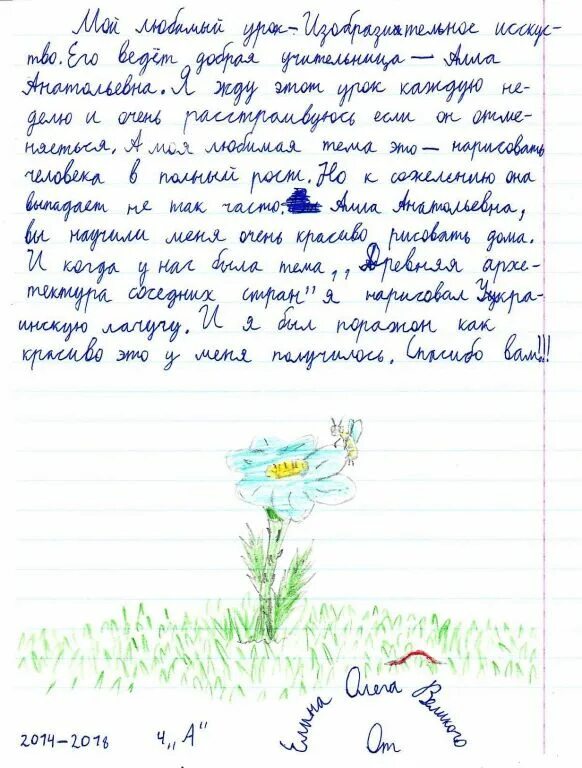 Мой любимый урок - Изобразительное исскус-
тво. Его ведёт добрая учительница — Алла
Анатольевна. Я жду этот урок каждую не-
делю и очень расстраивуюсь если он отме-
няеться. А моя любимая тема это — нарисовать
человека в полный рост. Но к сожелению она
выпадает не так часто. Алла Анатольевна,
вы научили меня очень красиво рисовать дома.
И когда у нас была тема „Древняя архе-
тектура соседних стран" я нарисовал Украи-
инскую лачугу. И я был поражон как
красиво это у меня получилось. Спасибо вам!!!
2014-2018 4 „А"
От
Елина Олега Великого